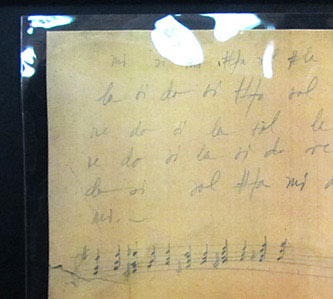 mi si mi #fa sol #la
la si do si #fa sol
re do si la sol le
re do si la si do re
do si sol #fa mi
mi.-